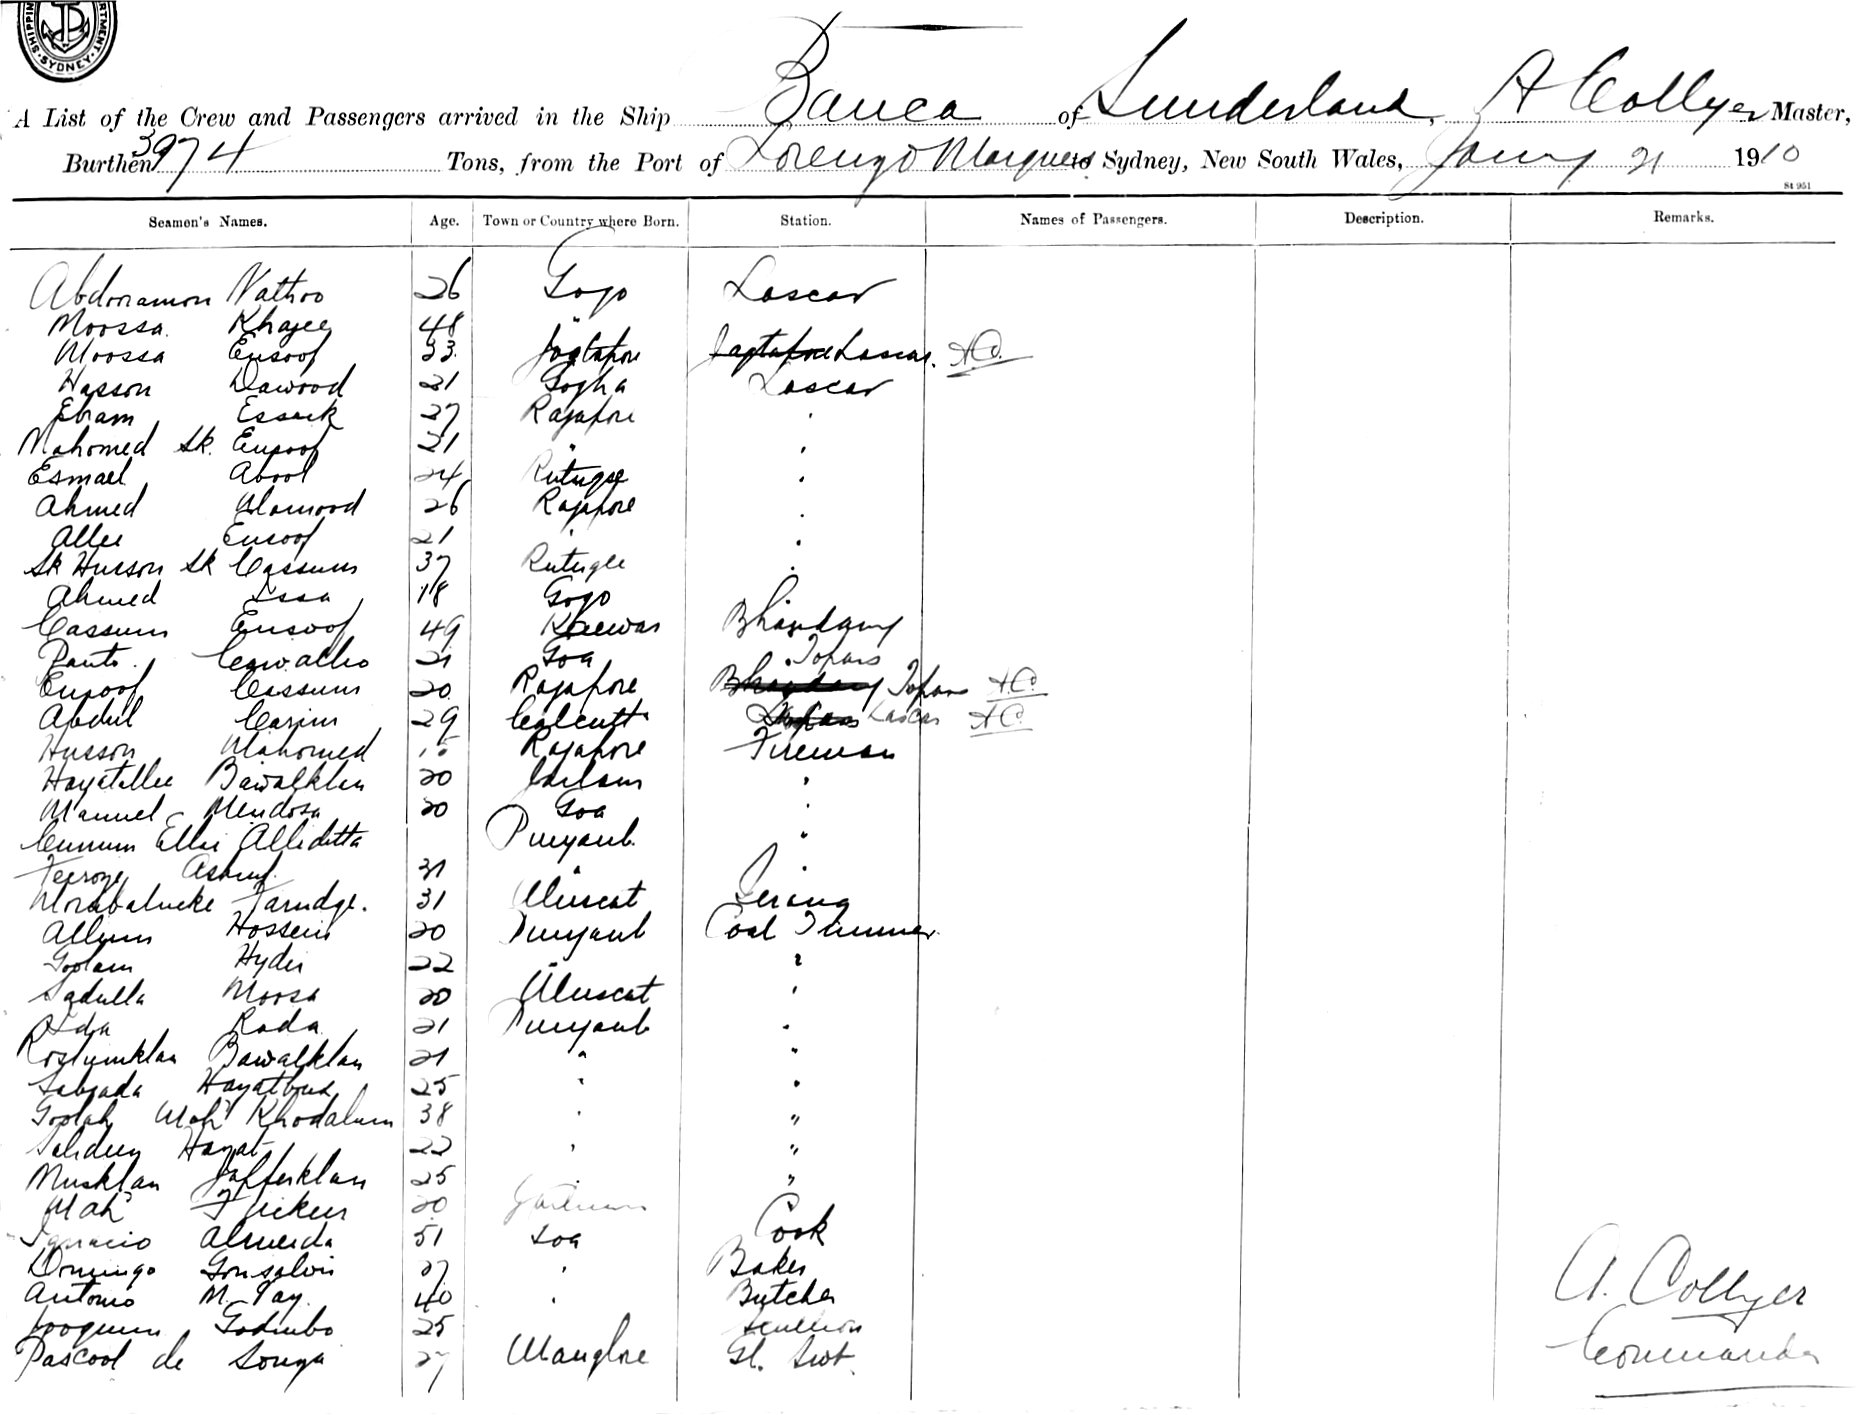 SHIPPING DEPARTMENT · SYDNEY ·
A List of the Crew and Passengers arrived in the Ship Banca of Sunderland, A Collyer Master,
Burthen 3974 Tons, from the Port of Lorenzo Marques to Sydney, New South Wales, 21 1910
St 951
Seamen's Names. Age. Town or Country where Born. Station. Names of Passengers. Description. Remarks.
Abdoramon Nathoo 26 Gogo Lascar
Moossa Khajee 48 "
Moossa Eusoof 33 Jagtapore Lascar. A.C.
Hasson Dawood 21 Gogha Lascar
Ebram Essack 27 Rajapore "
Mahomed Sk. Eusoof 21 " "
Esmael Abool 24 Rutugee "
Ahmed Mamood 26 Rajapore "
Allee Eusoof 21 " "
Sk Husson Sk Cassum 37 Rutugee "
Ahmed Issa 18 Gogo
Cassum Eusoof 49 Bhandary
Carvalho 21 Goa Topas
Eusoof Cassum 20 Rajapore Bhandary Topas A.C.
Abdul Carim 29 Calcutta Lascar A.C.
Husson Mahomed Rajapore Fireman
Hayatellee Bawalkhan 20 "
Manuel Mendosa 20 Goa "
Ellei Alliditta Punyaub "
Feeroze 31 " "
Farudge. 31 Muscat Serang
Allum Hossein 20 Punyaub Coal Trimmer
Goolam Hyder 22 " "
Sadulla Moosa 20 Muscat "
Rada 21 Punyaub "
Rostumkhan Bawalkhan 21 " "
Hayatbux 25 " "
Mahd 38 " "
Hayat 22 " "
Muskhan Jafferkhan 25 " "
Mahd 20
Ignacio Almeida 51 Goa Cook
Domingo Gonsalvis 27 " Baker
Antonio M. 40 " Butcher
Jooquim Godinho 25 Scullion
Pascool de Souza 27 Manglore Gl. Swt.
A. Collyer
Commander